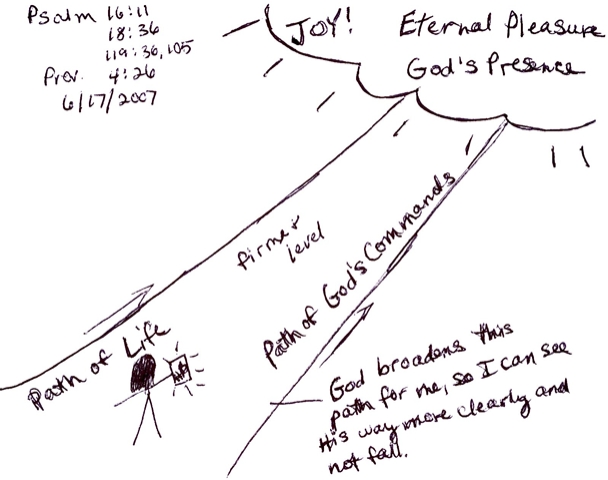 Psalm 16:11
18:36
119:30,105
Prov. 4:26
6/17/2007
JOY!
Eternal Pleasure
God's Presence
firm &
level
Path of God's Commands
Path of Life
God broadens this
path for me, so I can see
His way more clearly and
not fall.